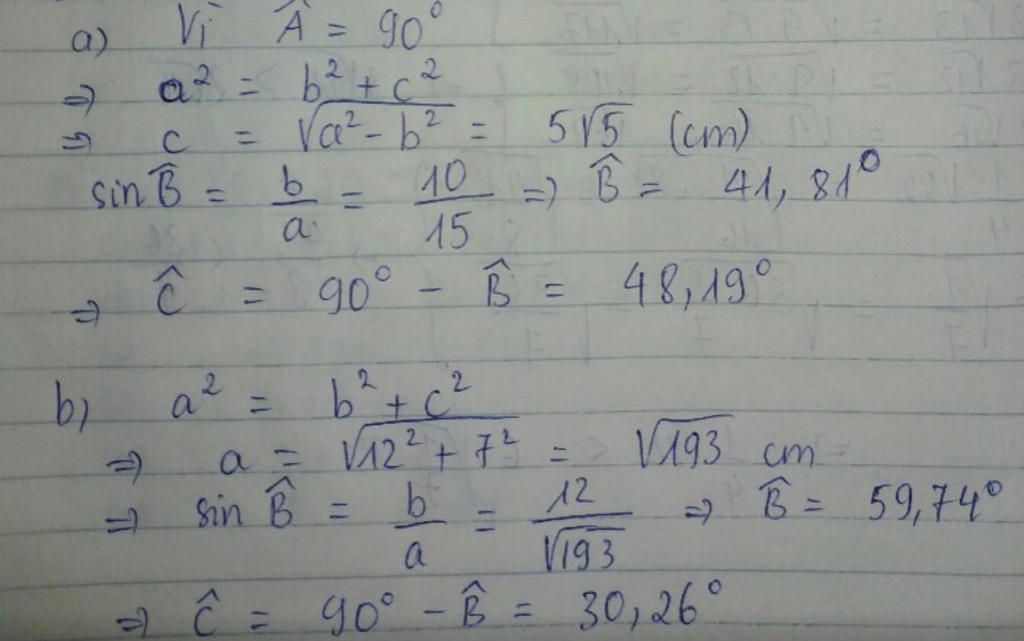 a) Vì Â = 90°
⇒ a² = b² + c²
⇒ c = √(a² - b²) = 5√5 (cm)
sin B̂ = b/a = 10/15 ⇒ B̂ = 41,81°
⇒ Ĉ = 90° - B̂ = 48,19°
b) a² = b² + c²
⇒ a = √(12² + 7²) = √193 cm
⇒ sin B̂ = b/a = 12/√193 ⇒ B̂ = 59,74°
⇒ Ĉ = 90° - B̂ = 30,26°